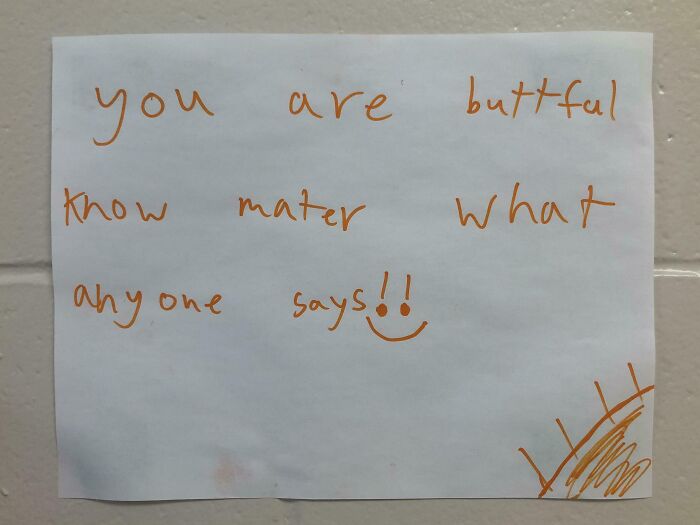 you are buttful
know mater what
anyone says!!